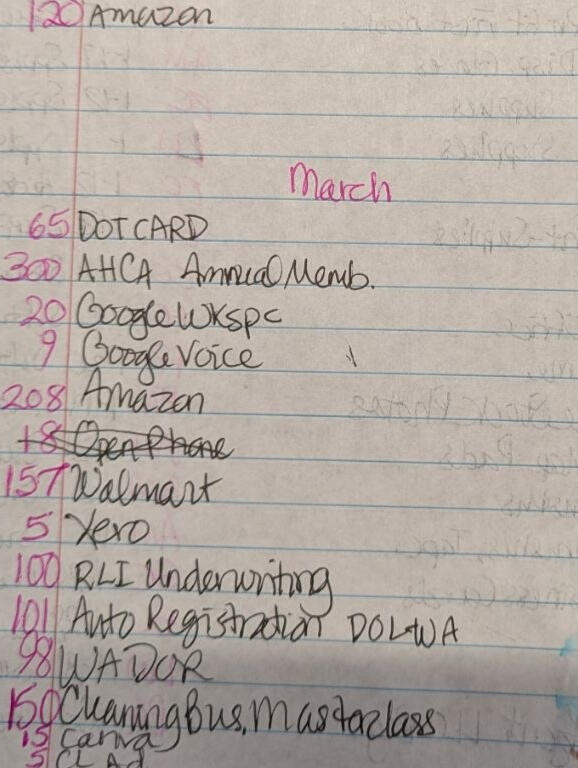 120 Amazon
March
65 DOTCARD
300 AHCA Annual Memb.
20 Google Wkspc
9 Google Voice
208 Amazon
18 Open Phone
157 Walmart
5 Xero
100 RLI Underwriting
101 Auto Registration DOL-WA
98 WADOR
150 Cleaning Bus. Masterclass
15 Canva
5 CL Ad